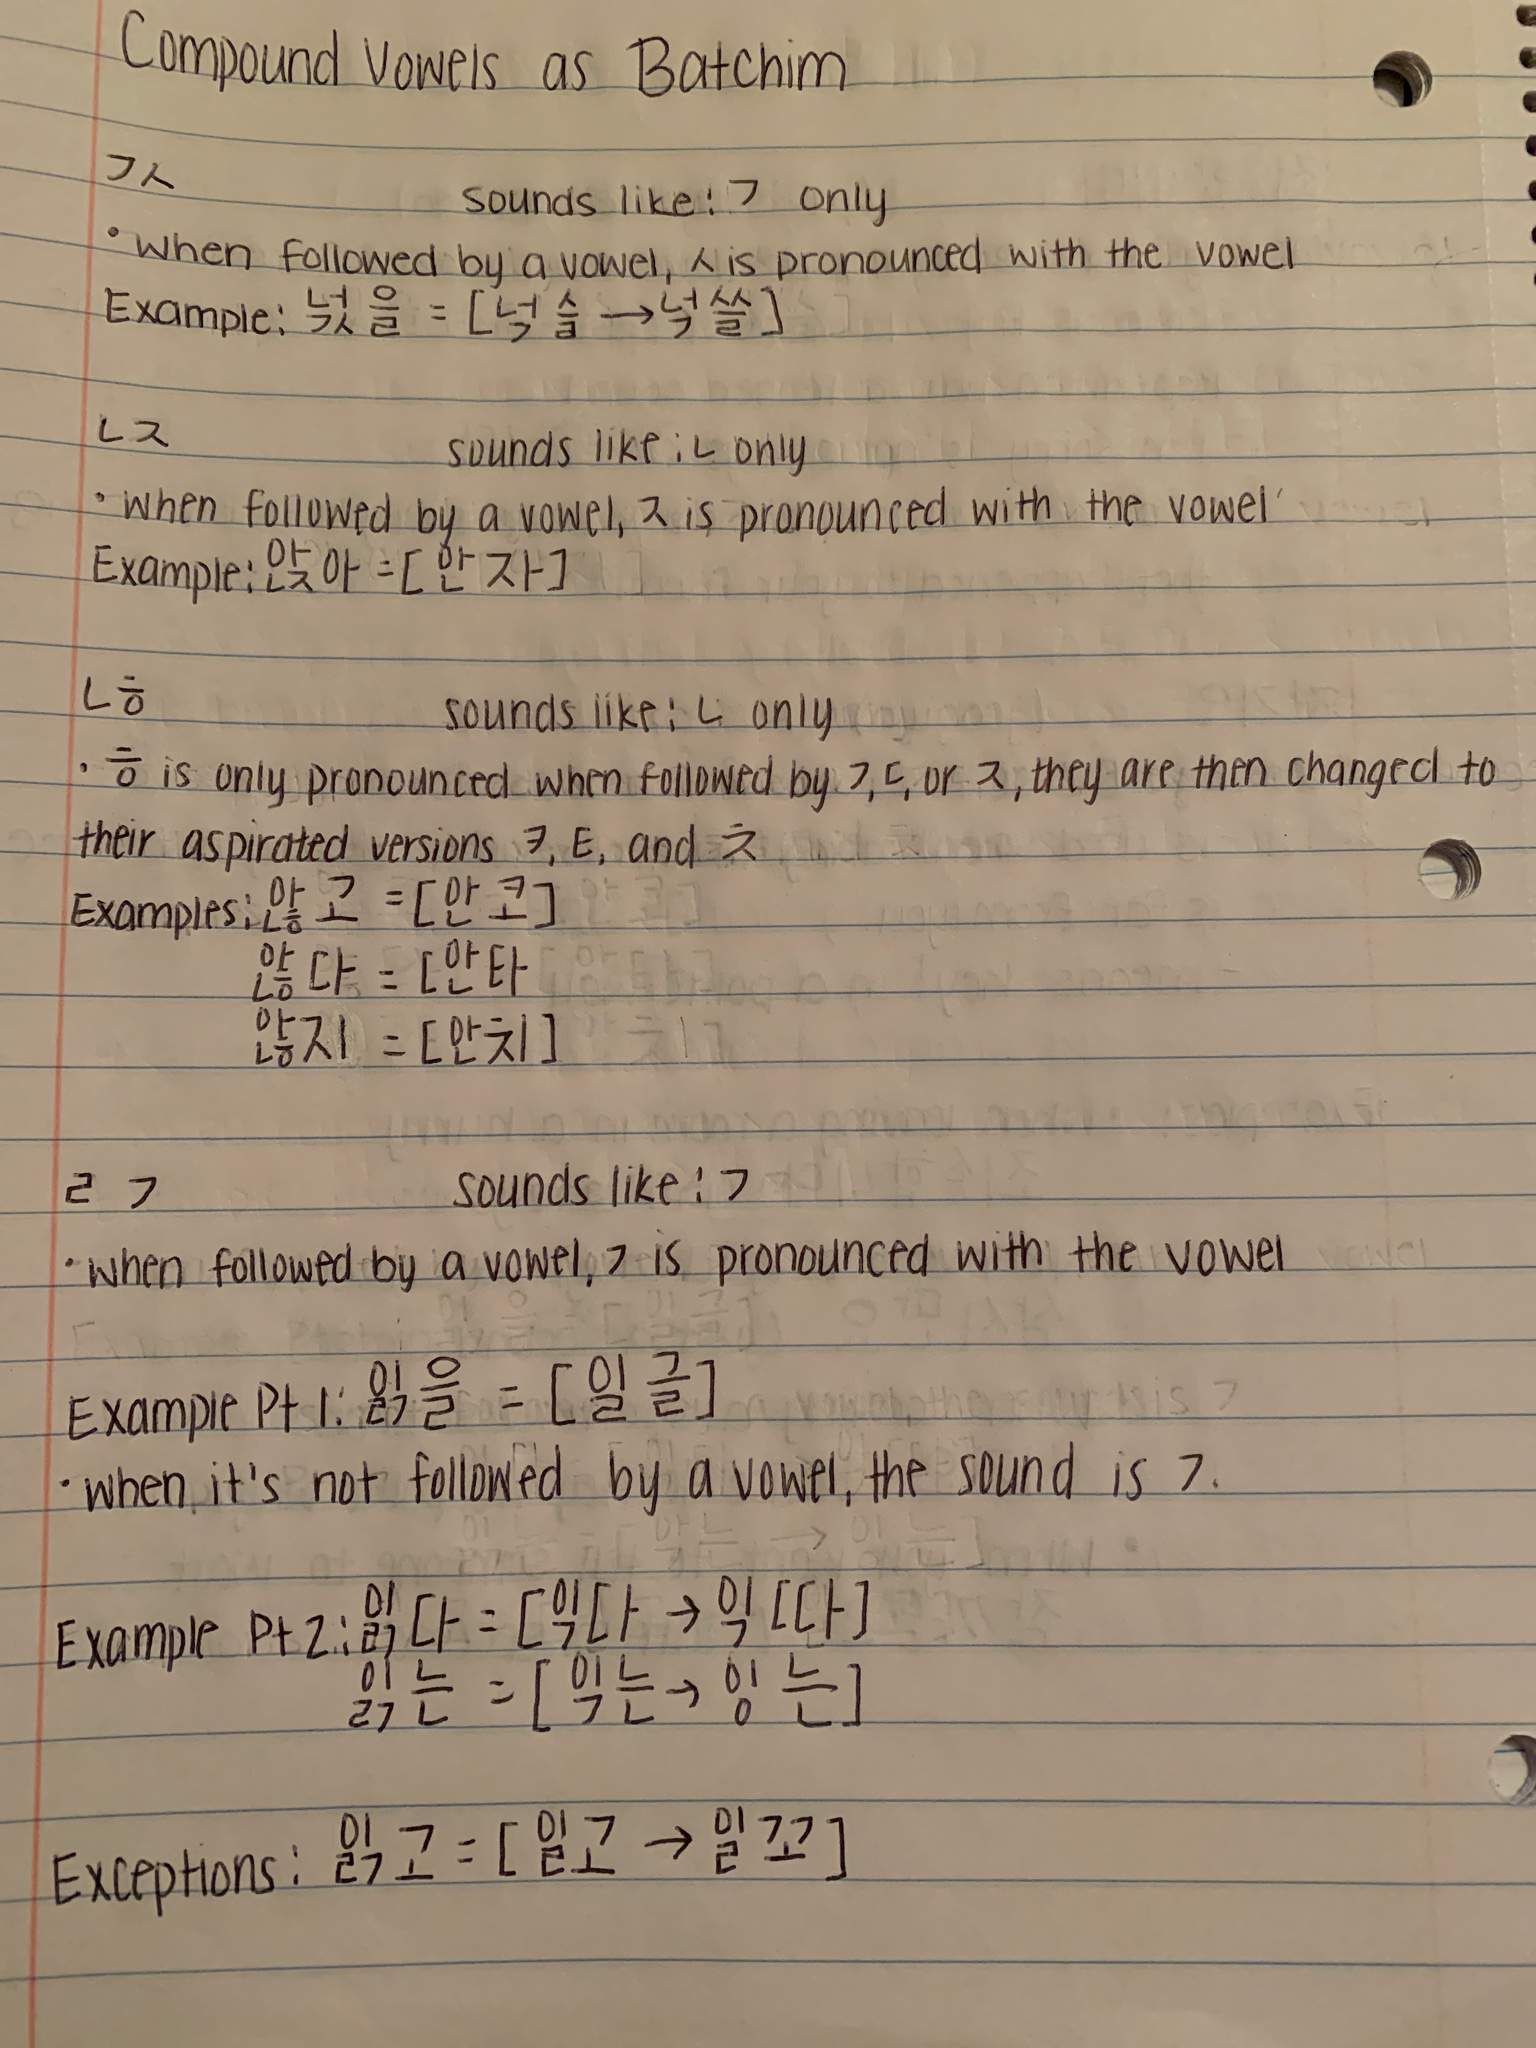 Compound Vowels as Batchim
ㄱㅅ sounds like: ㄱ only
• When followed by a vowel, ㅅ is pronounced with the vowel
Example: 넋을 = [넉슬 → 넉쓸]
ㄴㅈ sounds like: ㄴ only
• When followed by a vowel, ㅈ is pronounced with the vowel
Example: 앉아 = [안자]
ㄴㅎ sounds like: ㄴ only
• ㅎ is only pronounced when followed by ㄱ, ㄷ, or ㅈ, they are then changed to
their aspirated versions ㅋ, ㅌ, and ㅊ
Examples: 않고 = [안코]
않다 = [안타
않지 = [안치]
ㄹㄱ sounds like: ㄱ
• When followed by a vowel, ㄱ is pronounced with the vowel
Example Pt 1: 읽을 = [일글]
• When it's not followed by a vowel, the sound is ㄱ.
Example Pt 2: 읽다 = [익다 → 익따]
읽는 = [익는 → 잉는]
Exceptions: 읽고 = [일고 → 일꼬]